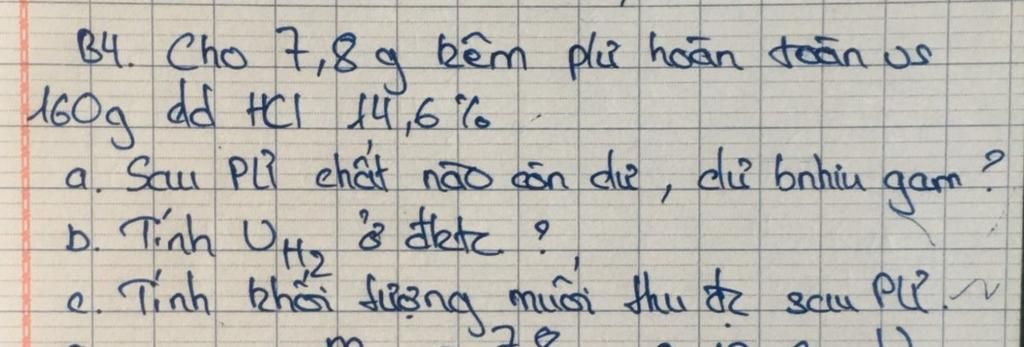 B4. Cho 7,8g kẽm pứ hoàn toàn vs
160g dd HCl 14,6%
a. Sau PỨ chất nào còn dư, dư bnhiu gam?
b. Tính VH2 ở đktc?
c. Tính khối lượng muối thu đc sau PỨ.